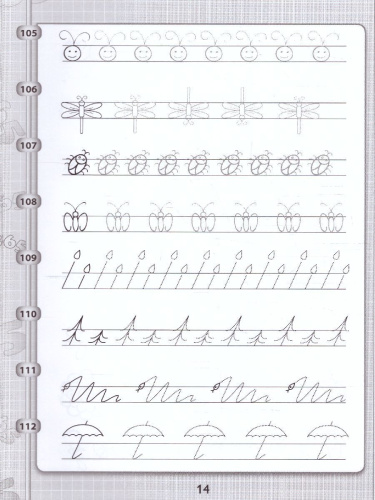 105
106
107
108
109
110
111
112
14